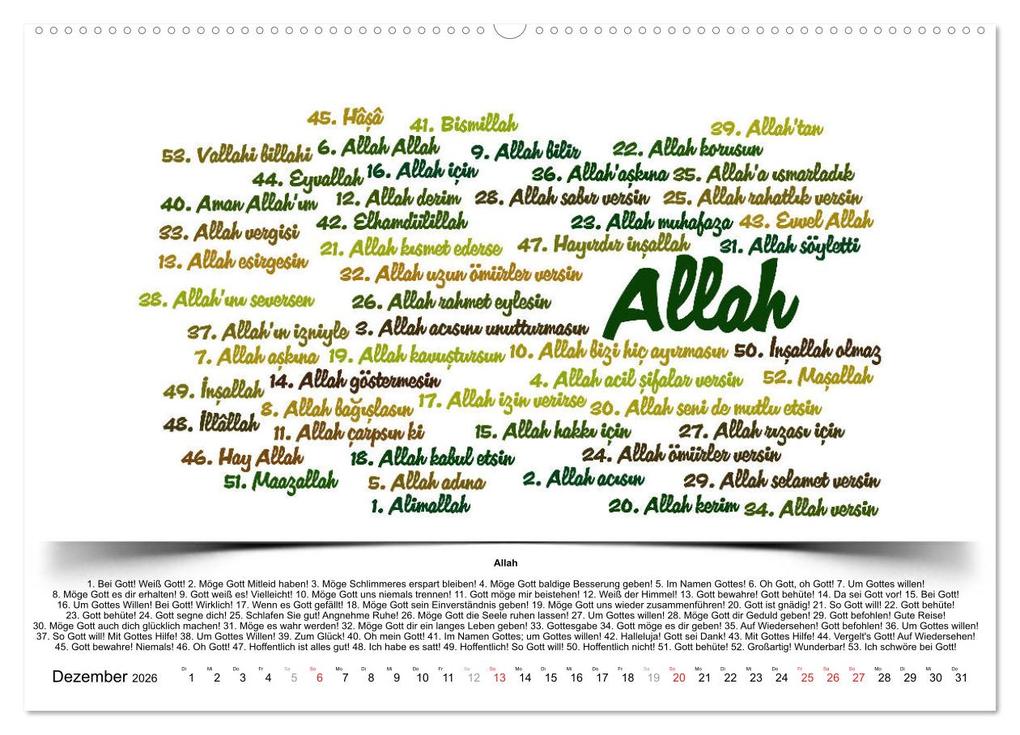 45. Hâşâ
41. Bismillah
39. Allah'tan
53. Vallahi billahi
6. Allah Allah
9. Allah bilir
22. Allah korusun
44. Eyvallah
16. Allah için
36. Allah'aşkına
35. Allah'a ısmarladık
40. Aman Allah'ım
12. Allah derim
28. Allah sabır versin
25. Allah rahatlık versin
33. Allah vergisi
42. Elhamdülillah
23. Allah muhafaza
43. Evvel Allah
21. Allah kısmet ederse
47. Hayırdır inşallah
31. Allah söyletti
13. Allah esirgesin
32. Allah uzun ömürler versin
Allah
38. Allah'ını seversen
26. Allah rahmet eylesin
37. Allah'ın izniyle
3. Allah acısını unutturmasın
7. Allah aşkına
19. Allah kavuştursun
10. Allah bizi hiç ayırmasın
50. İnşallah olmaz
49. İnşallah
14. Allah göstermesin
4. Allah acil şifalar versin
52. Maşallah
8. Allah bağışlasın
17. Allah izin verirse
30. Allah seni de mutlu etsin
48. İllâllah
11. Allah çarpsın ki
15. Allah hakkı için
27. Allah rızası için
46. Hay Allah
18. Allah kabul etsin
24. Allah ömürler versin
51. Maazallah
5. Allah adına
2. Allah acısın
29. Allah selamet versin
1. Alimallah
20. Allah kerim
34. Allah versin
Allah
1. Bei Gott! Weiß Gott! 2. Möge Gott Mitleid haben! 3. Möge Schlimmeres erspart bleiben! 4. Möge Gott baldige Besserung geben! 5. Im Namen Gottes! 6. Oh Gott, oh Gott! 7. Um Gottes willen!
8. Möge Gott es dir erhalten! 9. Gott weiß es! Vielleicht! 10. Möge Gott uns niemals trennen! 11. Gott möge mir beistehen! 12. Weiß der Himmel! 13. Gott bewahre! Gott behüte! 14. Da sei Gott vor! 15. Bei Gott!
16. Um Gottes Willen! Bei Gott! Wirklich! 17. Wenn es Gott gefällt! 18. Möge Gott sein Einverständnis geben! 19. Möge Gott uns wieder zusammenführen! 20. Gott ist gnädig! 21. So Gott will! 22. Gott behüte!
23. Gott behüte! 24. Gott segne dich! 25. Schlafen Sie gut! Angnehme Ruhe! 26. Möge Gott die Seele ruhen lassen! 27. Um Gottes willen! 28. Möge Gott dir Geduld geben! 29. Gott befohlen! Gute Reise!
30. Möge Gott auch dich glücklich machen! 31. Möge es wahr werden! 32. Möge Gott dir ein langes Leben geben! 33. Gottesgabe 34. Gott möge es dir geben! 35. Auf Wiedersehen! Gott befohlen! 36. Um Gottes willen!
37. So Gott will! Mit Gottes Hilfe! 38. Um Gottes Willen! 39. Zum Glück! 40. Oh mein Gott! 41. Im Namen Gottes; um Gottes willen! 42. Halleluja! Gott sei Dank! 43. Mit Gottes Hilfe! 44. Vergelt's Gott! Auf Wiedersehen!
45. Gott bewahre! Niemals! 46. Oh Gott! 47. Hoffentlich ist alles gut! 48. Ich habe es satt! 49. Hoffentlich! So Gott will! 50. Hoffentlich nicht! 51. Gott behüte! 52. Großartig! Wunderbar! 53. Ich schwöre bei Gott!
Di Mi Do Fr Sa So Mo Di Mi Do Fr Sa So Mo Di Mi Do Fr Sa So Mo Di Mi Do Fr Sa So Mo Di Mi Do
Dezember 2026 1 2 3 4 5 6 7 8 9 10 11 12 13 14 15 16 17 18 19 20 21 22 23 24 25 26 27 28 29 30 31